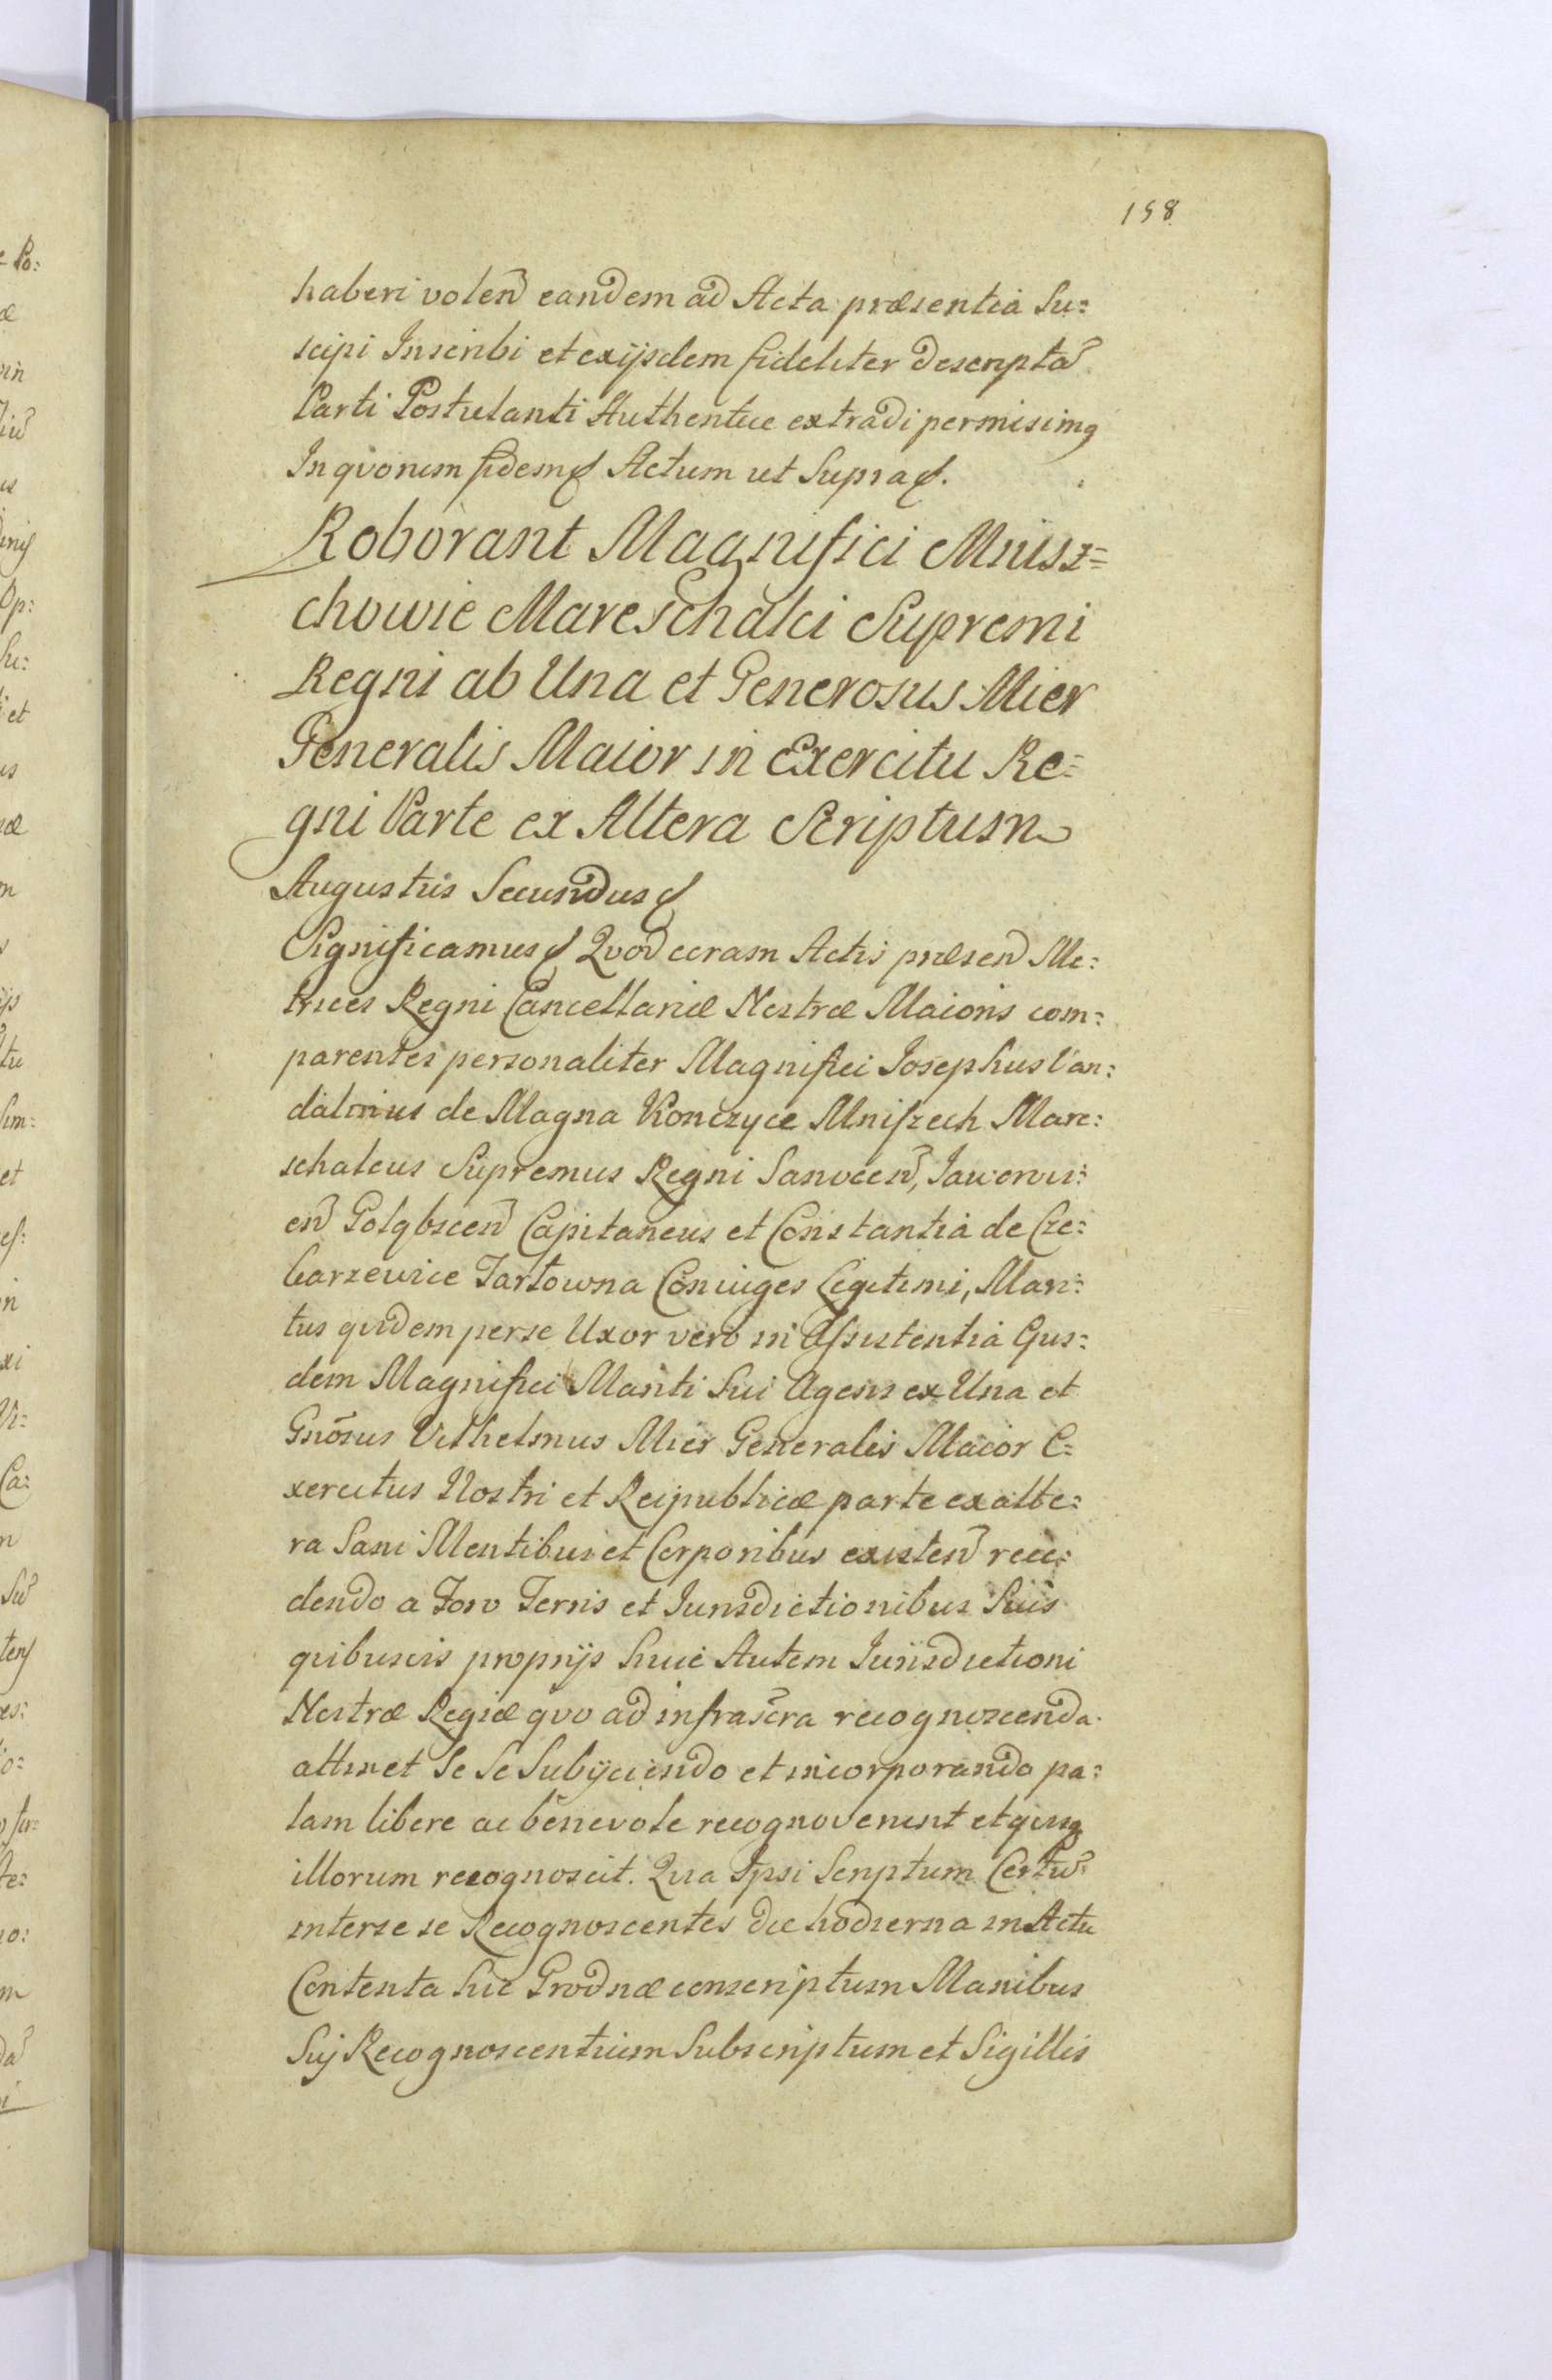 158
haberi volen̄ eandem ad Acta præsentia Su=
scipi Inscribi et ex ijsdem fideliter descriptā
Parti Postulanti Authentice extradi permisimq
In qvorum fidem Actum ut Supra.
Roborant Magnifici Mnisz=
chowie Mareschalci Supremi
Regni ab Una et Generosus Mier
Generalis Maior in Exercitu Re=
gni Parte ex Altera Scriptum
Augustus Secundus
Significamus Qvod coram Actis præsen̄ Me=
trices Regni Cancellariæ Nostræ Maioris com=
parentes personaliter Magnifici Josephus Van=
dalinus de Magna Konczyce Mniszech Mare=
schalcus Supremus Regni Sanocen̄, Jaworovi=
en̄ Golqbscen̄ Capitaneus et Constantia de Cze=
karzewice Tartowna Coniuges Legitimi, Mari=
tus quidem per se Uxor vero in Assistentia Ejus=
dem Magnifici Mariti Sui Agens ex Una et
Gnōsus Vilhelmus Mier Generalis Maior E=
xercitus Nostri et Reipublicæ parte ex alte=
ra Sani Mentibus et Corporibus existen̄ rece=
dendo a Foro Terris et Jurisdictionibus Suis
quibusvis proprijs huic Autem Jurisdictioni
Nostræ Regiæ qvo ad infrascra recognoscenda
attinet Se Se Subijciendo et incorporando pa=
lam libere ac benevole recognoverunt et
illorum recognoscit. Quia Ipsi Scriptum Certū
inter se se Recognoscentes die hodierna in Actu
Contenta hic Grodnæ conscriptum Manibus
Suj Recognoscentium Subscriptum et Sigillis